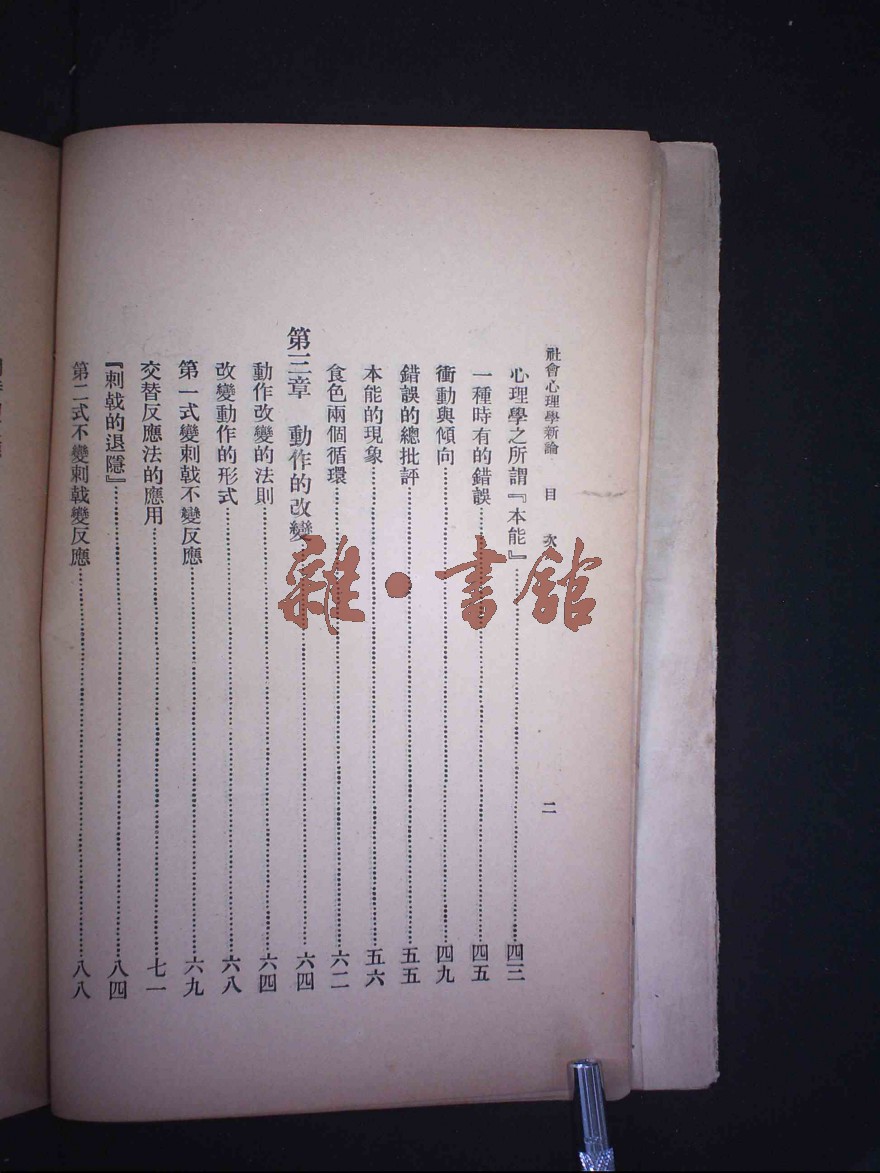 社會心理學新論 目次 二
心理學之所謂『本能』 四三
一種時有的錯誤 四五
衝動與傾向 四九
錯誤的總批評 五五
本能的現象 五六
食色兩個循環 六二
第三章 動作的改變 六四
動作改變的法則 六四
改變動作的形式 六八
第一式變刺戟不變反應 六九
交替反應法的應用 七一
『刺戟的退隱』 八四
第二式不變刺戟變反應 八八
雜·書館